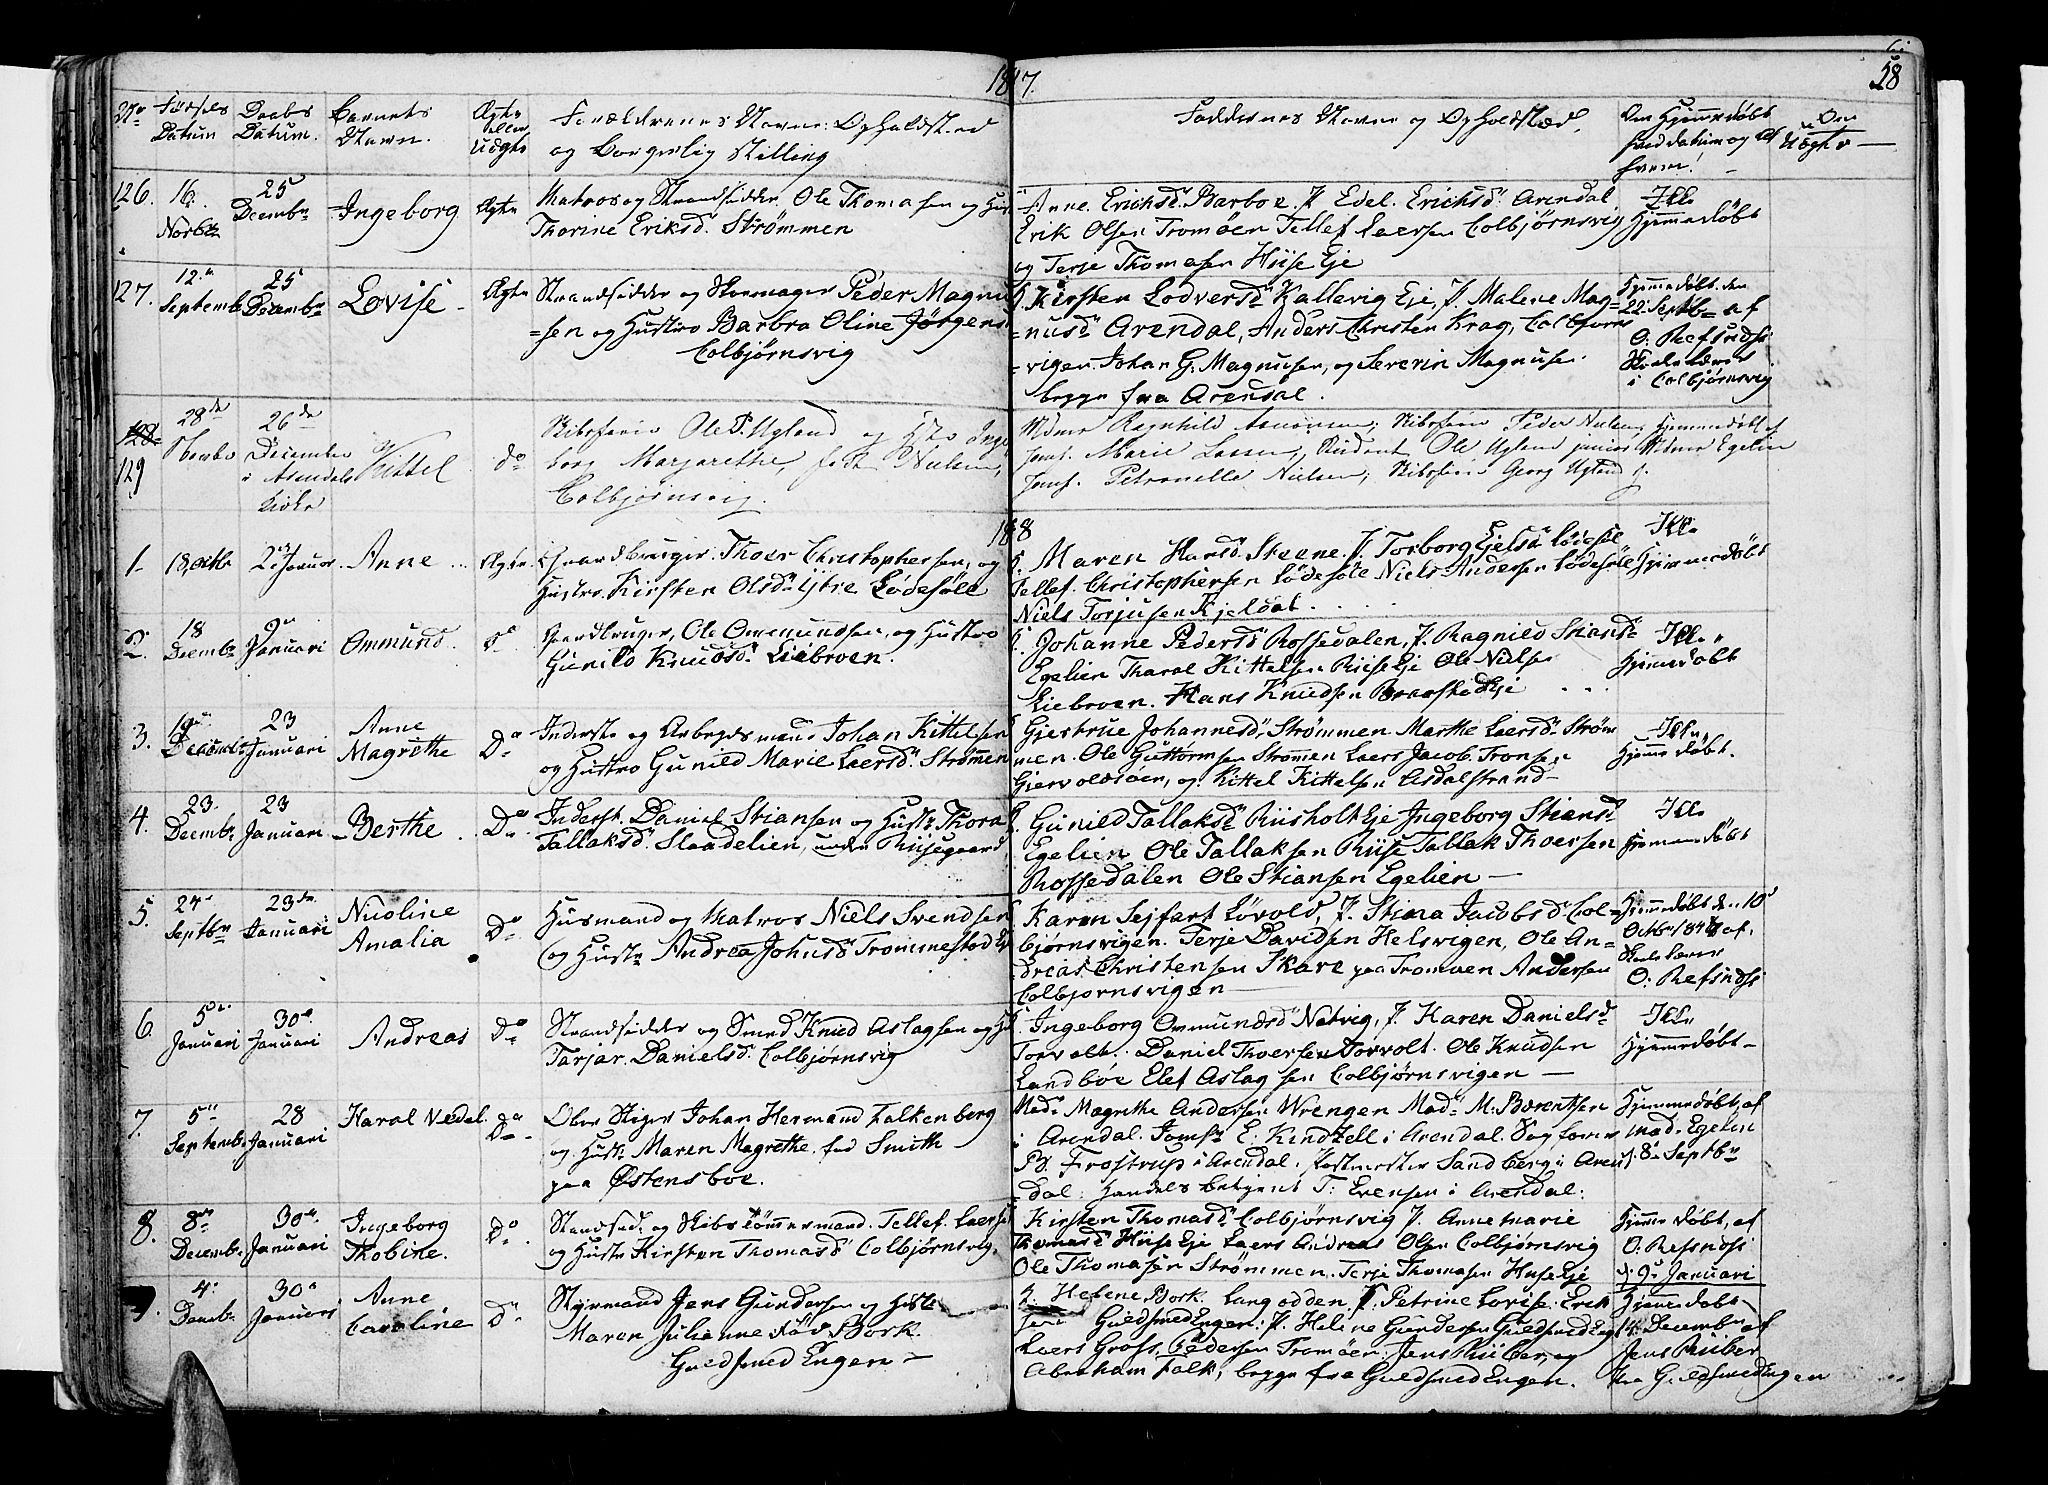 1847. 58
No Fødsels Datum Daabs Datum. Barnets Navn. Ægte eller Uægte Forældrenes Navne: Opholdsted og Borgerlig Stilling
Faddernes Navne og Opholdsted. Om Hjemmedøbt hvad datum og af hvem! Om Uægte
126. 16. Novbr 25 Decembr Ingeborg Ægte Matros og Strandsidder Ole Thomasen og Hust
Thorine Eriksd. Strømmen
Anne Eriksd. Barboe. J. Edel. Eriksd. Arendal
Erik Olsen Tromøen Tellef Laersen Colbjørnsvig
og Terje Thomasen Hiise Eje
Ikke Hjemmedøbt
127. 12. Septemb 25 Decembr Lovise Ægte Strandsidder og Skomager Peder Magnu
=sen og Hustro Barbra Oline Jörgens
Colbjørnsvig
Kirsten Lodversd. Kallevig Eje, J. Malene Mag=
=nusd. Arendal, Anders Christen Krag, Colbjørns
=vigen. Johan G. Magnusen, og Severin Magnusen
begge fra Arendal.
Hjemmedøbt den
22 Septbr af
O: Refsndsi
Skolelærer
i Colbjørnsvig
128
129 28de 26de December i Arendals Kirke Kittel do Skibsfører Ole P. Ugland og Hstro Inge
borg Margarethe, født Nielsen,
Colbjørnsvig.
Mdme Ragnhild Aanonsen, Skibsfører Peder Nielsen,
Jomf. Marie Lassen, Student Ole Ugland junior,
Jomf. Petronelle Nielsen, Skibsfører Georg Ugland
Hjemmedöbt af
Mdme Egelien
1848
1. 18 Octbr 2 Januar Anne Ægte Gaardbruger Thoer Christophersen, og
Hustro Kirsten Olsd. Ytre Lödesöle
Maren Hansd. Steene. J. Torborg Ejelsd Lödesöle
Tellef. Christophersen Lödesöle Niels Andersen Lödesöle
Niels Torjusen Kjeldal
Ikke Hjemmedøbt
2. 18 Decembr 9 Januari Ommund. Do Gaardbruger, Ole Ommundsen, og Hustro
Gunild Knudsd. Liebroen.
Johanne Pedersd. Rossedalen, J. Ragnild Stiansd.
Egelien Tharal Kittelsen Riise Eje Ole Nielsen
Liebroen. Hans Knudsen Braastad Eje
Ikke Hjemmedøbt
3. 19 Decembr 23 Januari Anne Magrethe Do Inderste og Arbejdsmand Johan Kittelsen
og Hustro Gunild Marie Laersd. Strømmen
Gjertrue Johannesd. Strømmen Marthe Laersd. Strøm
men. Ole Guttormsen Strømmen Laers Jacob Tronsen
Gjervoldsøen, og Kittel Kittelsen Asdalstrand
Ikke Hjemmedøbt.
4. 23. Decembr 23 Januari Berthe Do Inderst. Daniel Stiansen og Hustr. Thora
Tallaksd. Slaadelien, under Riisegaard
Gunild Tallaksd. Riisholt Eje Ingeborg Stiansd
Egelien Ole Tallaksen Riise Tallak Thoersen
Rossedalen Ole Stiansen Egelien
Ikke Hjemmedøbt
5. 24 Septbr 23de Januari Nicoline Amalia Do Husmand og Matros Niels Svendsen
og Hustr Andrea Johnsd. Trommestad Ej
Karen Sejfart Lövold, J. Stina Jacobsd. Col=
bjørnsvigen. Terje Davidsen Helsvigen, Ole An=
dreas Christensen Skare paa Tromøen Andersen
Colbjørnsvigen
Hjemmedøbt den 10
Octbr 1847 af
Skolelærer
O: Refsndsi
6. 5 Januari 30 Januari Andreas Do Strandsidder og Smed Knud Aslagsen og Hs
Tarjar. Danielsd. Colbjørnsvig
Ingeborg Ommundsd. Natvig, J. Karen Danielsd
Torvolt. Daniel Thoersen Torvolt. Ole Knudsen
Landbøe Elef Aslagsen Colbjørnsvigen
Ikke Hjemmedøbt
7. 5 Septembr 28 Januari Harol Vedel Do Ober Stiger Johan Hermand Falkenberg
og Hustr Maren Magrethe. fød Smith
paa Østensboe.
Mad. Magrethe Andersen Wrengen Mad. M. Børentsen
i Arendal. Jomfr E. Kindzell i Arendal. Sagfører
B. Frostrup i Arendal. Postmester Sandberg i Aren
dal. Handels betjent T: Evensen i Arendal.
Hjemmedøbt, af
Mad. Egelien
8. Septbr
8. 8 Decembr 30 Januari Ingeborg Thobine. Do Strandsid. og Skibs tømmermand. Tellef. Laerse
og Hustr Kirsten Thomasd. Colbjørnsvig
Kirsten Thomasd. Colbjørnsvig J. Anne Marie
Thomasd. Hiise Eje Laers Andreas Olsen Colbjørnsvig
Ole Thomasen Strømmen. Terje Thomasen Huse Eje
Hjemmedøbt, af
O. Refsndsi
d. 9 Januari
9. 4. Decembr 30 Januari Anne Caroline Do Styrmand Jens Gundersen og Hust
Maren Julianne fød Bork.
Guldsmed Engen
Helene Bork Langodden. J. Petrine Lovise Erik
sen Guldsmed Engen. J. Helene Gundersen Guldsmed Eng
Laers Gross, Pedersen Tromøen. Jens Riiber, og
Abraham Falk, begge fra Guldsmed Engen.
Hjemmedøbt
14 Decembr af
Jens Riiber
fra Guldsmed Engen